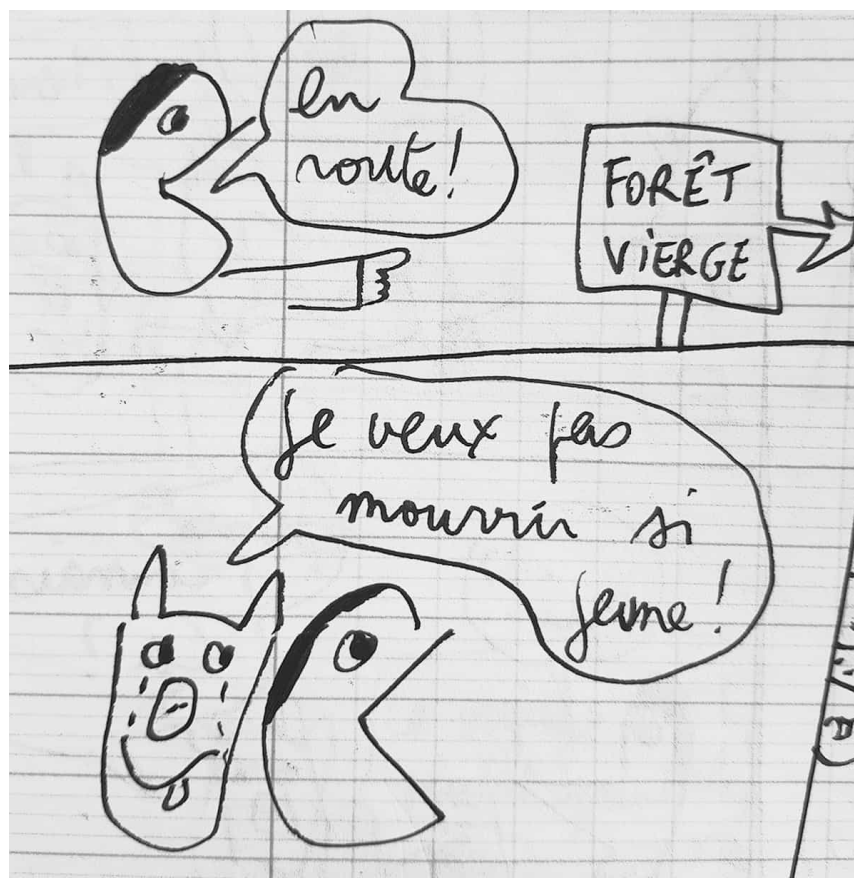 en
route!
FORÊT
VIERGE
je veux pas
mourrir si
jeune!